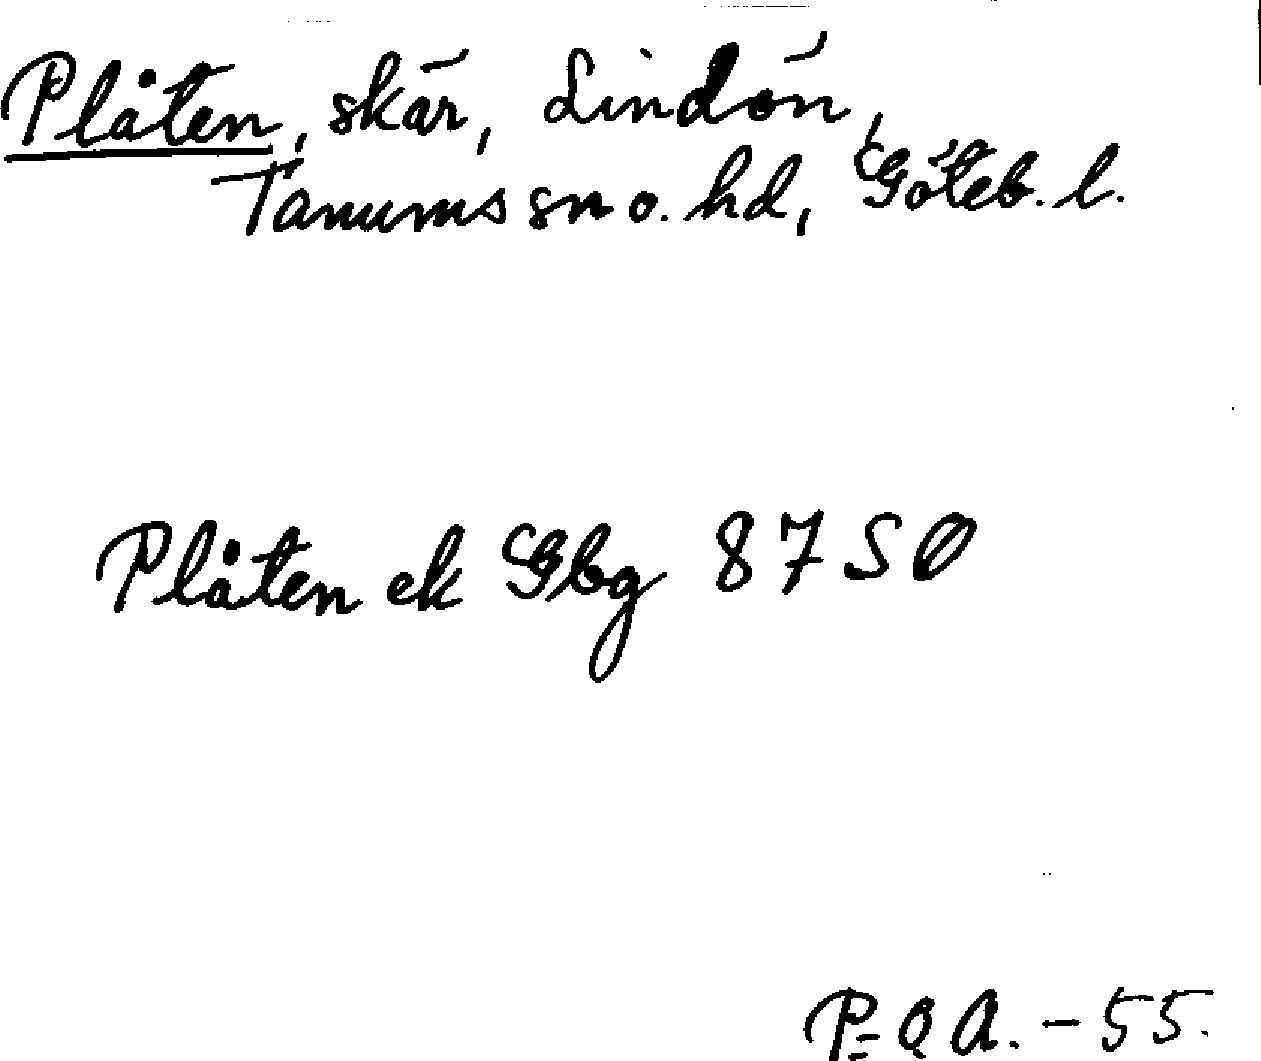 Plåten, skär, Lindön,
Tanums sn o. hd, Göteb. l.
Plåten ek Gbg 8750
P=Q A. - 55.